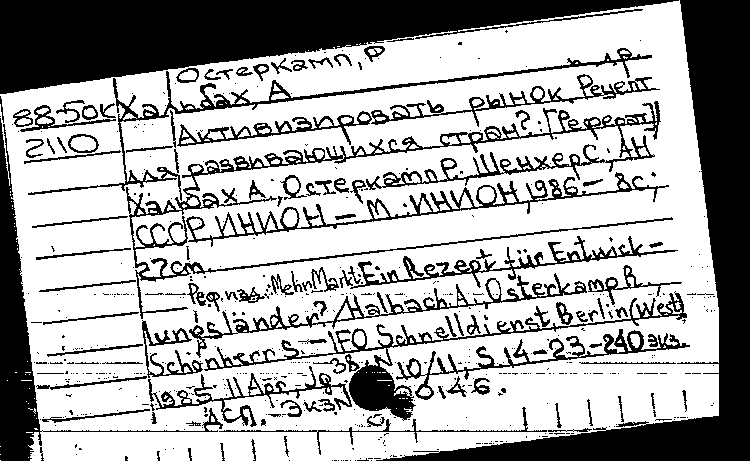 Остеркамп, Р
88-50к Хальбах, А и др.
2110 Активизировать рынок. Рецепт
для развивающихся стран?: [Реферат]
Хальбах А.; Остеркамп Р., Шенхер С.; АН
СССР, ИНИОН. – М.: ИНИОН, 1986. – 8с.;
27cm.
Реф. на з.: Mehr Markt: Ein Rezept für Entwick-
lungsländer? / Halbach A.; Osterkamp R.,
Schönherr S. – IFO Schnelldienst, Berlin (West)
1985, 11 Apr., Jg 38, N 10/11, S. 14-23. – 240 экз.
ДСП. – Экз N 0146.